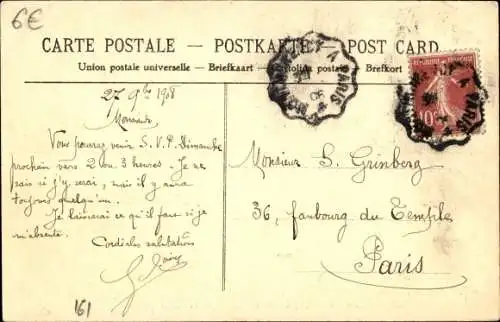 6€
CARTE POSTALE — POSTKARTE — POST CARD
Union postale universelle. — Briefkaart — Cartolina postale — Brefkort
A PARIS
REPUBLIQUE FRANÇAISE
10
27 9bre 1908
Monsieur
Vous pourrez venir S.V.P. Dimanche
prochain vers 2 ou 3 heures - Je ne
sais si j'y serai, mais il y aura
toujours quelqu'un.
Je laisserai ce qu'il faut si je
m'absente.
Cordiales salutations
Monsieur S. Grinberg
36, faubourg du Temple
Paris
161